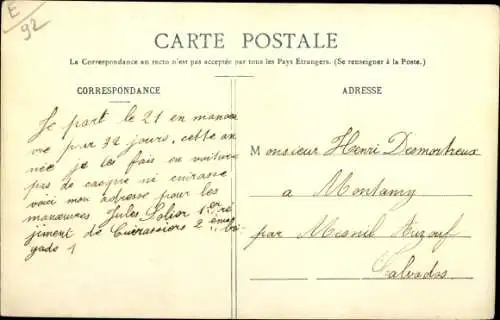 E
92
CARTE POSTALE
La Correspondance au recto n'est pas acceptée par tous les Pays Etrangers. (Se renseigner à la Poste.)
CORRESPONDANCE
Je part le 21 en manoeu
vre pour 32 jours, cette an
nie je les fais en voiture
pas de casque ni cuirasse
voici mon adresse pour les
manœuvres Jules Lolier 1er ré
jiment de Cuirassiers 2 eme bri
gade 1
ADRESSE
Monsieur Henri Desmortreux
a Montamy
par Mesnil Auzouf
Calvados